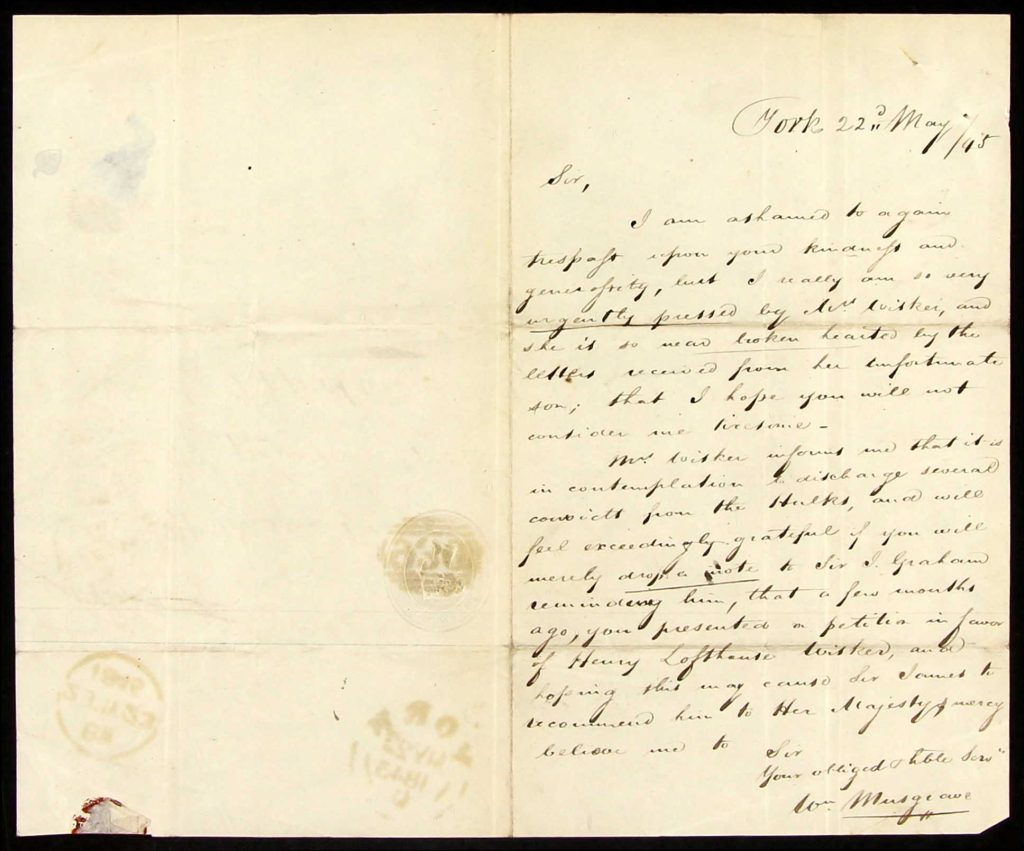 York 22nd May /45
Sir,
I am ashamed to again
trespass upon your kindness and
generosity, but I really am so very
urgently pressed by Mrs Wisker, and
she is so near broken hearted by the
letters received from her unfortunate
son; that I hope you will not
consider me tiresome -
Mrs Wisker informs me that it is
in contemplation to discharge several
convicts from the Hulks, and will
feel exceedingly grateful if you will
merely drop a note to Sir J. Graham
reminding him, that a few months
ago, you presented a petition in favor
of Henry Lofthouse Wisker, and
hoping this may cause Sir James to
recommend him to Her Majestys mercy
believe me to
Sir
Your obliged & hble Servt
Wm Musgrave
YORK
MY 22
1845
1845